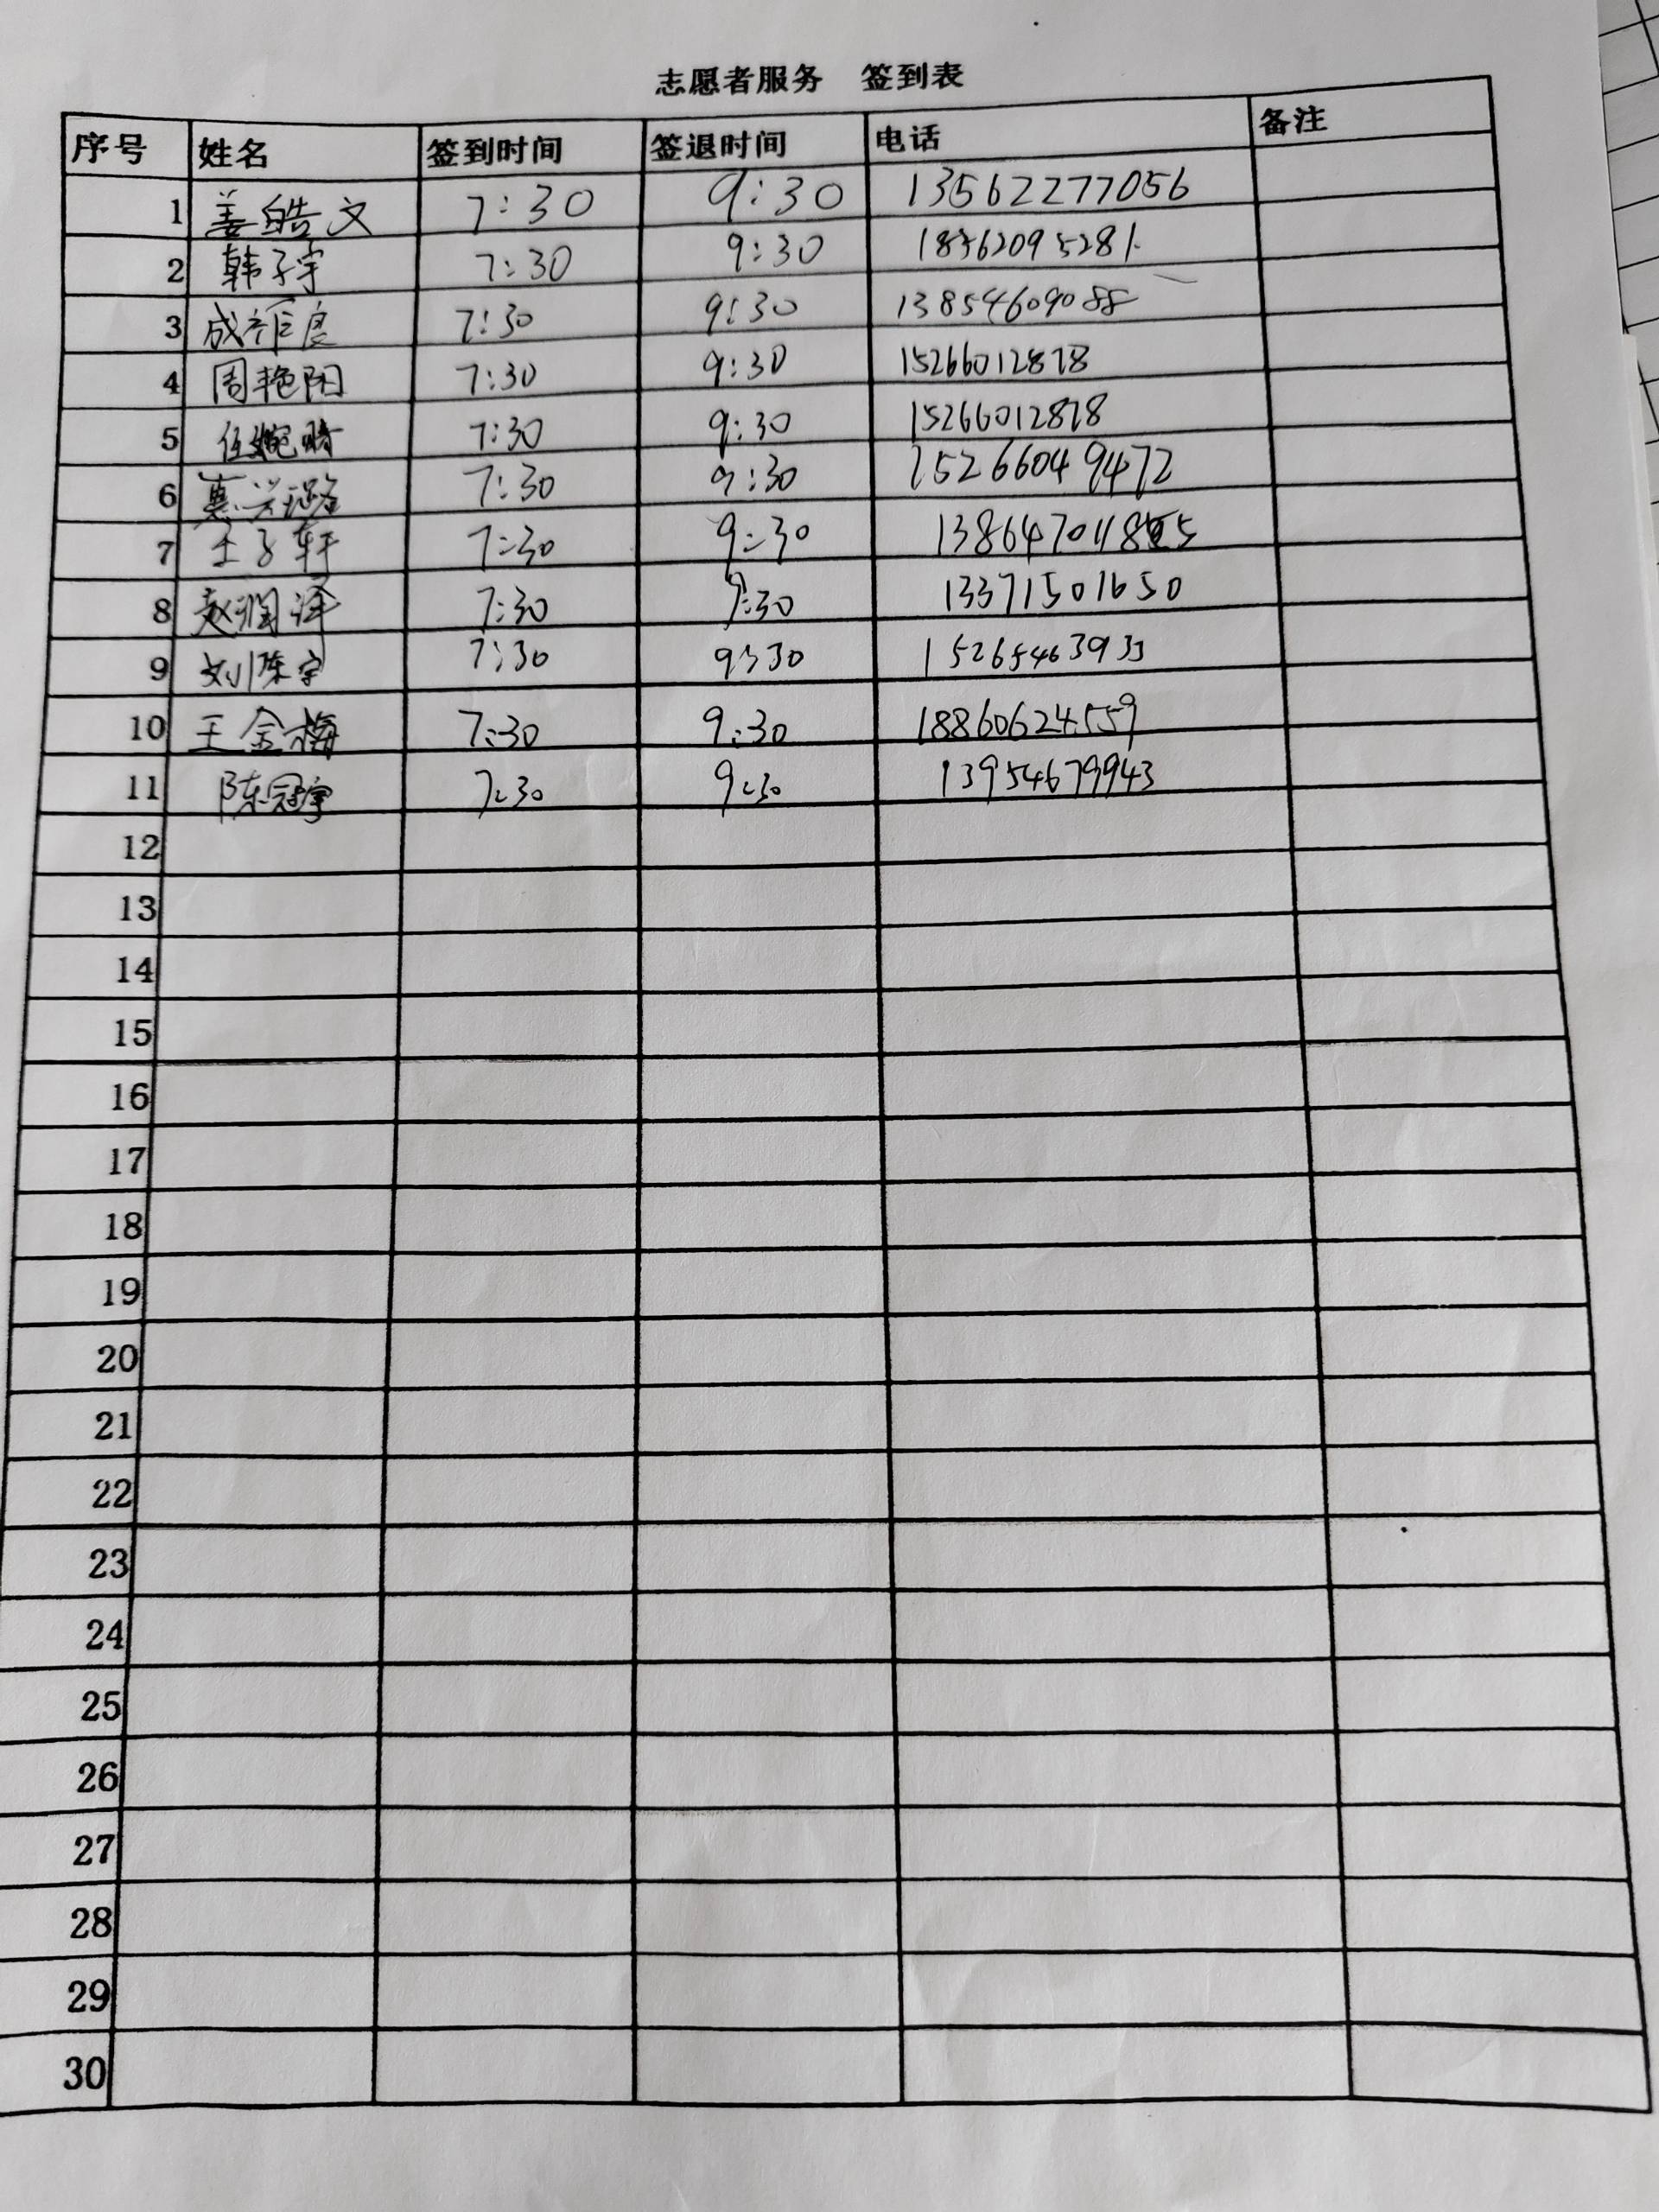 志愿者服务 签到表
序号 姓名 签到时间 签退时间 电话 备注
1 姜皓文 7:30 9:30 13562277056
2 韩子宇 7:30 9:30 18562095281
3 7:30 9:30 13854609088
4 周艳阳 7:30 9:30 15266012878
5 7:30 9:30 15266012878
6 7:30 9:30 15266049472
7 王子轩 7:30 9:30
8 赵润泽 7:30 9:30 13371501650
9 刘陈宇 7:30 9:30 15265463933
10 王金梅 7:30 9:30 18860624559
11 陈冠宇 7:30 9:30 13954679943
12
13
14
15
16
17
18
19
20
21
22
23
24
25
26
27
28
29
30